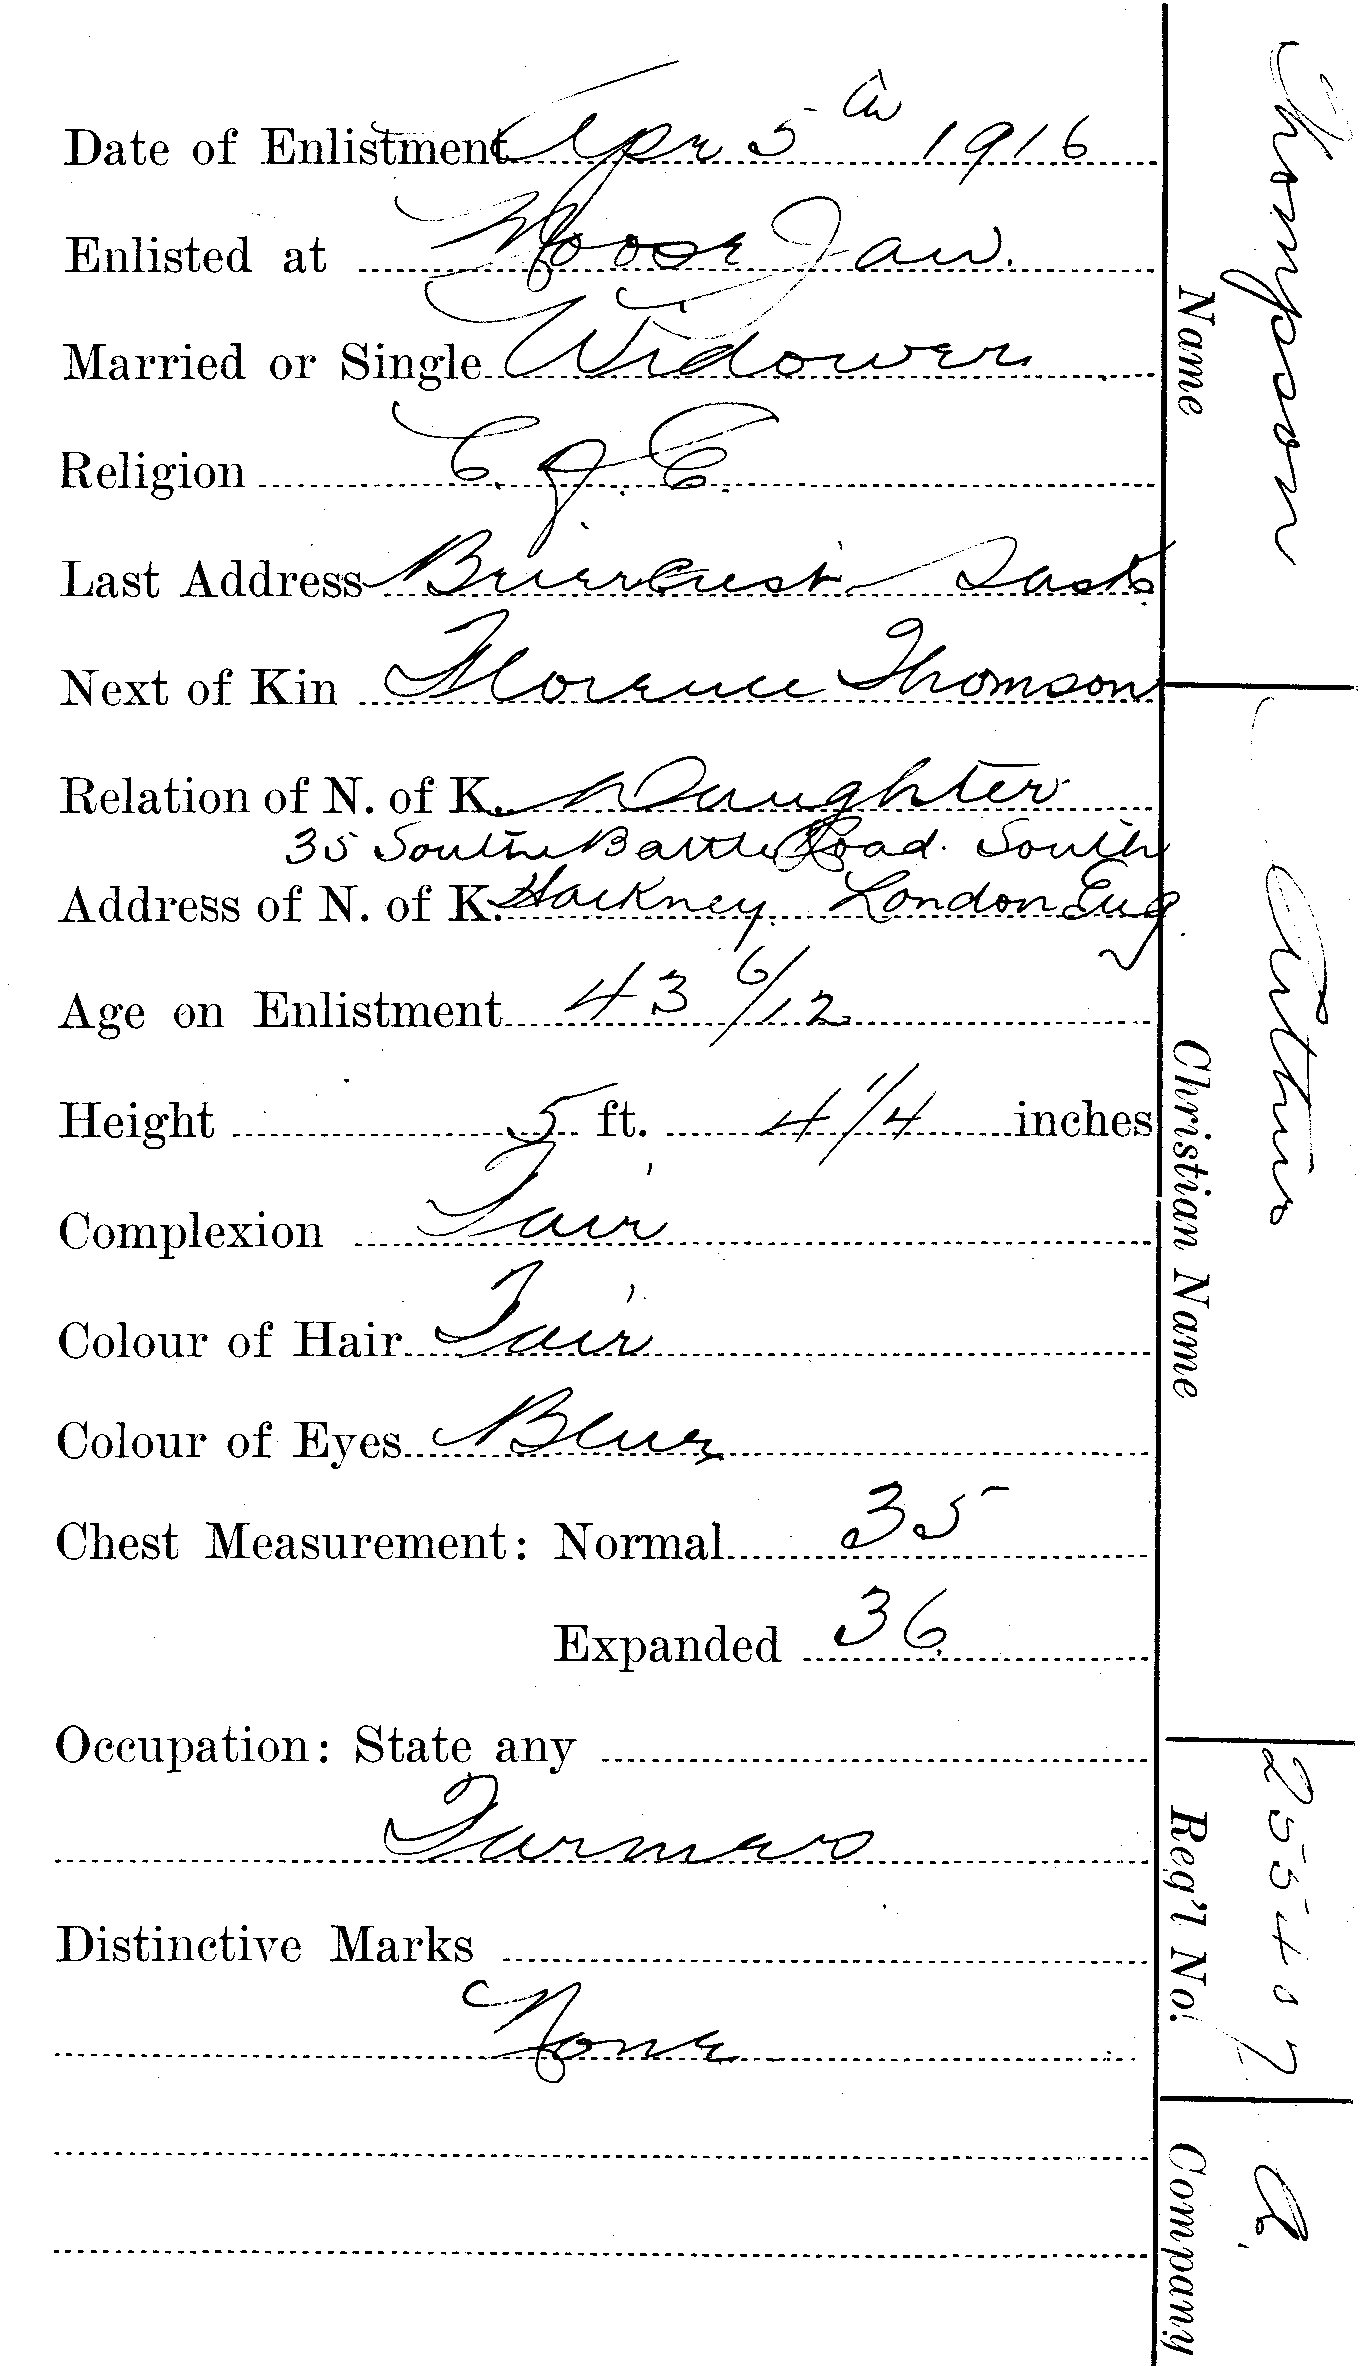 Date of Enlistment Apr 5th 1916
Enlisted at Moose Jaw.
Married or Single Widower
Religion C. of E.
Last Address Briercrest Sask
Next of Kin Florence Thomson
Relation of N. of K. Daughter
35 Southe Battle Road. South
Address of N. of K. Hackney London Eng
Age on Enlistment 43 6/12
Height 5 ft. 4 1/4 inches
Complexion Fair
Colour of Hair Fair
Colour of Eyes Blue
Chest Measurement: Normal 35
Expanded 36
Occupation: State any
Farmer
Distinctive Marks
None
Thompson
Name
Arthur
Christian Name
255407
Reg'l No.
A
Company